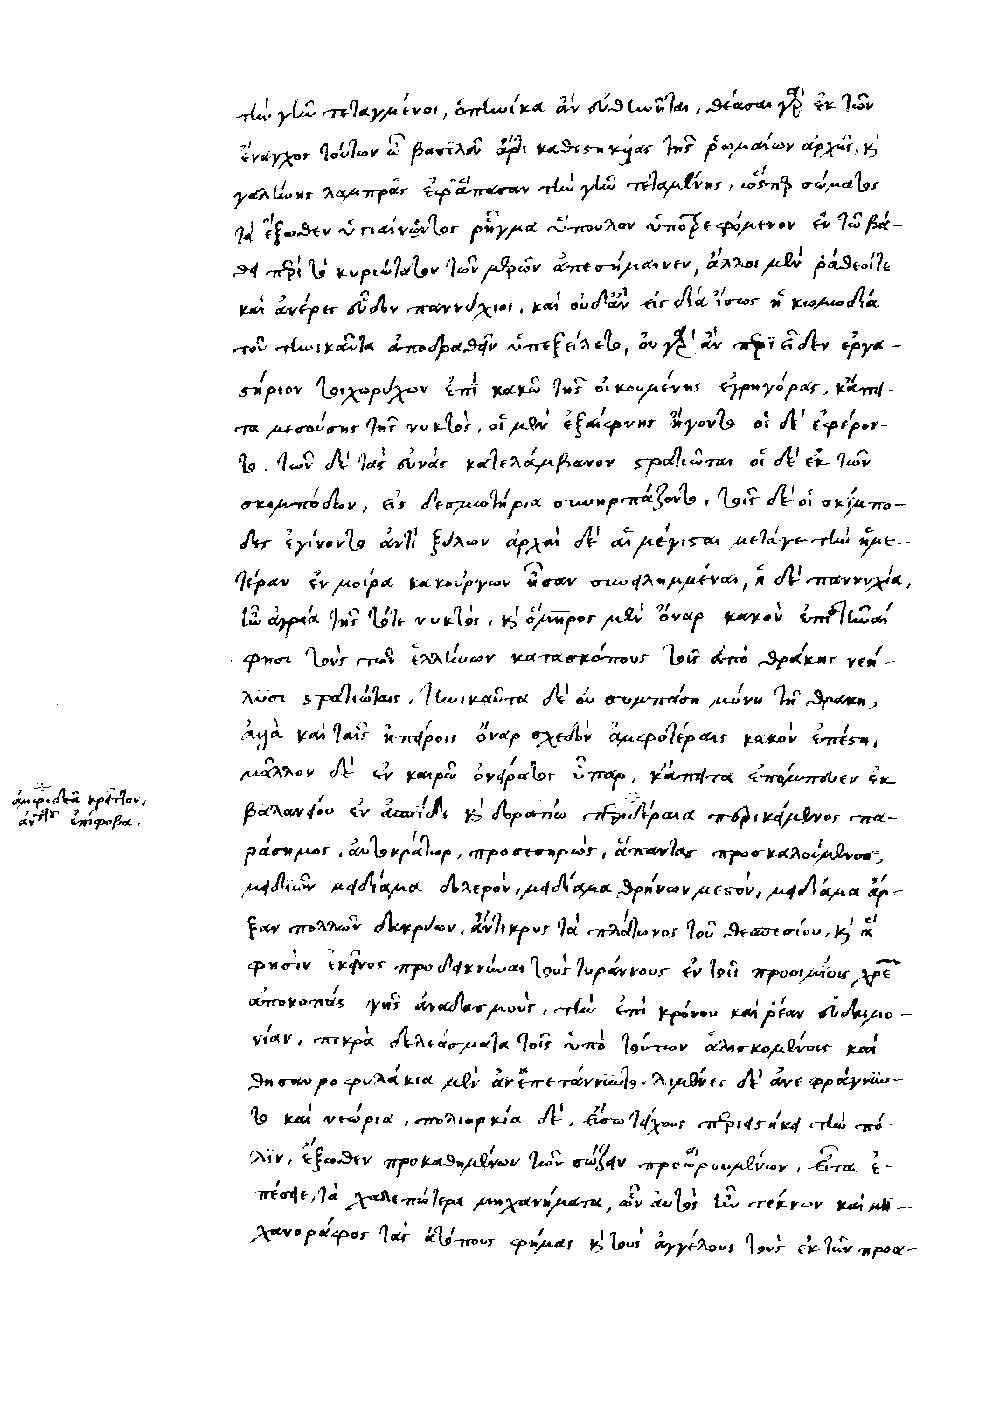 τὴν γῆν τεταγμένοι, ὁπηνίκα ἂν εὐθηνῆται, θέασαι γὰρ ἐκ τῶν
ἔναγχος τούτων ὦ βασιλεῦ ἄρτι καθεστηκυίας τῆς ῥωμαίων ἀρχῆς, καὶ
γαλήνης λαμπρᾶς ἐφ' ἅπασαν τὴν γῆν τεταμένης, ὥσπερ σώματος
τὰ ἔξωθεν ὑγιαίνοντος ῥῆγμα ὕπουλον ὑποτρεφόμενον ἐν τῶ βά-
θει περὶ τὸ κυριώτατον τῶν μερῶν ἀπεσήμαινεν, ἄλλοι μὲν
καὶ ἀνέρες εὗδον παννύχιοι, καὶ οὐδ' ἂν εἰς δία ἴσως ἡ κωμωδία
τοῦ τηνικαῦτα ἀποδραθεῖν ὑπεξείλετο, οὐ γὰρ ἂν περιεῖδεν ἐργα-
στήριον τοιχωρύχων ἐπὶ κακῶ τῆς οἰκουμένης ἐγρηγόρας, κἄπει-
τα μεσούσης τῆς νυκτὸς, οἱ μὲν ἐξαίφνης ἤγοντο οἱ δὲ ἐφέρον-
το. τῶν δὲ τὰς εὐνὰς κατελάμβανον στρατιῶται οἱ δὲ ἐκ τῶν
σκιμπόδων, εἰς δεσμωτήρια συνηρπάζοντο, τοῖς δὲ οἱ σκίμπο-
δες ἐγίνοντο ἀντὶ ξύλων ἀρχαὶ δὲ αἱ μέγισται μετάγε τὴν ἡμε-
τέραν ἐν μοίρα κακούργων ἦσαν συνειλημμέναι, ἡ δὲ παννυχία,
ἦν ἀγρία τῆς τότε νυκτὸς, καὶ ὅμηρος μὲν ὄναρ κακὸν ἐπιστῆναί
φησι τοὺς τῶν ἑλλήνων κατασκόπους τοῖς ἀπὸ θράκης νεή-
λυσι στρατιώταις, τηνικαῦτα δὲ οὐ συμπάση μόνη τῆ θράκη,
ἀλλὰ καὶ ταῖς ἠπείροις ὄναρ σχεδὸν ἀμφοτέραις κακὸν ἐπέστη,
μᾶλλον δὲ ἐν καιρῶ ὀνείρατος ὕπαρ, κἄπειτα ἐπόμπευεν ἐκ
βαλανείου ἐν καὶ περιδέραια περικείμενος πα-
ράσημος, αὐτοκράτωρ, προσεσηρὼς, ἅπαντας προσκαλούμενος,
μειδιῶν μειδίαμα δολερὸν, μειδίαμα θρήνων μεστὸν, μειδίαμα ἄρ-
ξαν πολλῶν δακρύων, ἄντικρυς τὰ πλάτωνος τοῦ θεσπεσίου, καὶ ἅ
φησιν ἐκεῖνος προδεικνύναι τοὺς τυράννους ἐν τοῖς προοιμίοις χρε
ἀποκοπὰς γῆς ἀναδασμοὺς, τὴν ἐπὶ κρόνου καὶ ῥέαν εὐδαιμο-
νίαν, πικρὰ δελεάσματα τοῖς ὑπὸ τούτων ἁλισκομένοις καὶ
θησαυροφυλάκια μὲν ἀνεπετάννυτο. λιμένες δὲ ἀνεφράγνυν-
το καὶ νεώρια, πολιορκία δὲ, εἴσω τείχους περιειστήκει τὴν πό-
λιν, ἔξωθεν προκαθημένων τῶν σώζειν προηρουμένων, εἶτα ἐ-
πέστη, τὰ χαλεπώτερα μηχανήματα, ὧν αὐτὸς ἦν τέκτων καὶ μη-
χανοράφος τὰς ἀτόπους φήμας καὶ τοὺς ἀγγέλους τοὺς ἐκ τῶν προα-
ἀμφιδεᾶ κρεῖττον,
ἀντὶ τοῦ ἐπίφοβα.